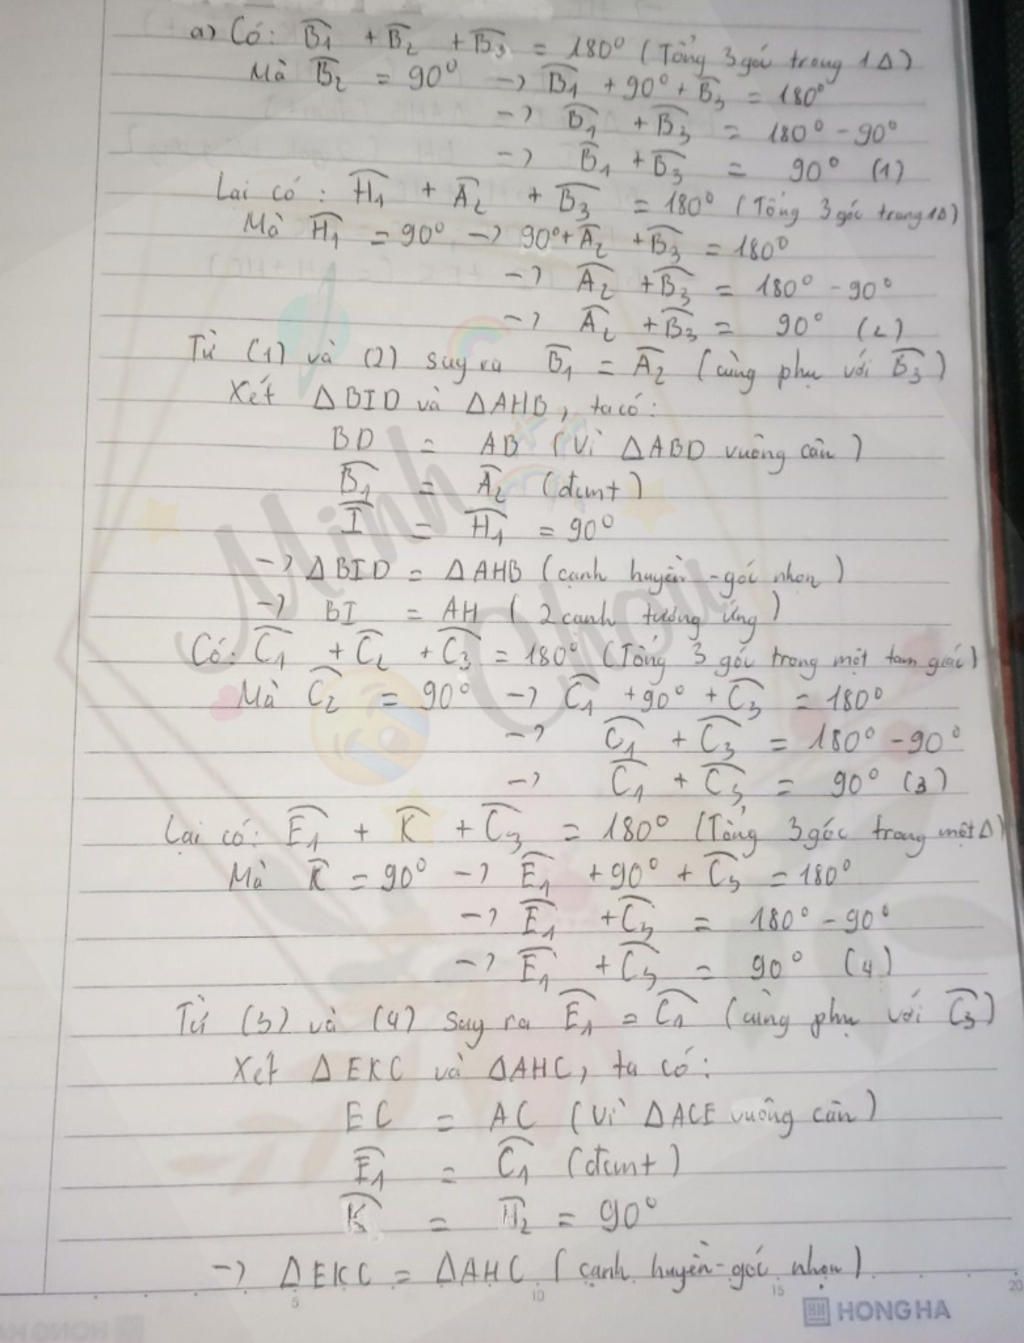 a) Có: B̂1 + B̂2 + B̂3 = 180° (Tổng 3 góc trong 1Δ)
Mà B̂2 = 90° → B̂1 + 90° + B̂3 = 180°
→ B̂1 + B̂3 = 180° - 90°
→ B̂1 + B̂3 = 90° (1)
Lại có: Ĥ1 + Â2 + B̂3 = 180° (Tổng 3 góc trong 1Δ)
Mà Ĥ1 = 90° → 90° + Â2 + B̂3 = 180°
→ Â2 + B̂3 = 180° - 90°
→ Â2 + B̂3 = 90° (2)
Từ (1) và (2) suy ra B̂1 = Â2 (cùng phụ với B̂3)
Xét ΔBID và ΔAHB, ta có:
BD = AB (Vì ΔABD vuông cân)
B̂1 = Â2 (đcmt)
Î = Ĥ1 = 90°
→ ΔBID = ΔAHB (cạnh huyền - góc nhọn)
→ BI = AH (2 cạnh tương ứng)
Có: Ĉ1 + Ĉ2 + Ĉ3 = 180° (Tổng 3 góc trong một tam giác)
Mà Ĉ2 = 90° → Ĉ1 + 90° + Ĉ3 = 180°
→ Ĉ1 + Ĉ3 = 180° - 90°
→ Ĉ1 + Ĉ3 = 90° (3)
Lại có: Ê1 + K̂ + Ĉ3 = 180° (Tổng 3 góc trong một Δ)
Mà K̂ = 90° → Ê1 + 90° + Ĉ3 = 180°
→ Ê1 + Ĉ3 = 180° - 90°
→ Ê1 + Ĉ3 = 90° (4)
Từ (3) và (4) suy ra Ê1 = Ĉ1 (cùng phụ với Ĉ3)
Xét ΔEKC và ΔAHC, ta có:
EC = AC (Vì ΔACE vuông cân)
Ê1 = Ĉ1 (đcmt)
K̂ = Ĥ2 = 90°
→ ΔEKC = ΔAHC (cạnh huyền - góc nhọn)
5 10 15 20
HONG HA
Minh Chou